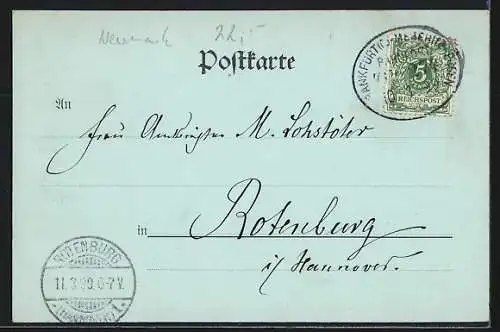 Neumark 22,-
Postkarte
FRANKFURT(ODER)
5
REICHSPOST
An
Frau Amtsrichter M. Lohstöter
in Rotenburg
i/ Hannover.
ROTENBURG
11.3.99.6-7V.
(HANNOVER)